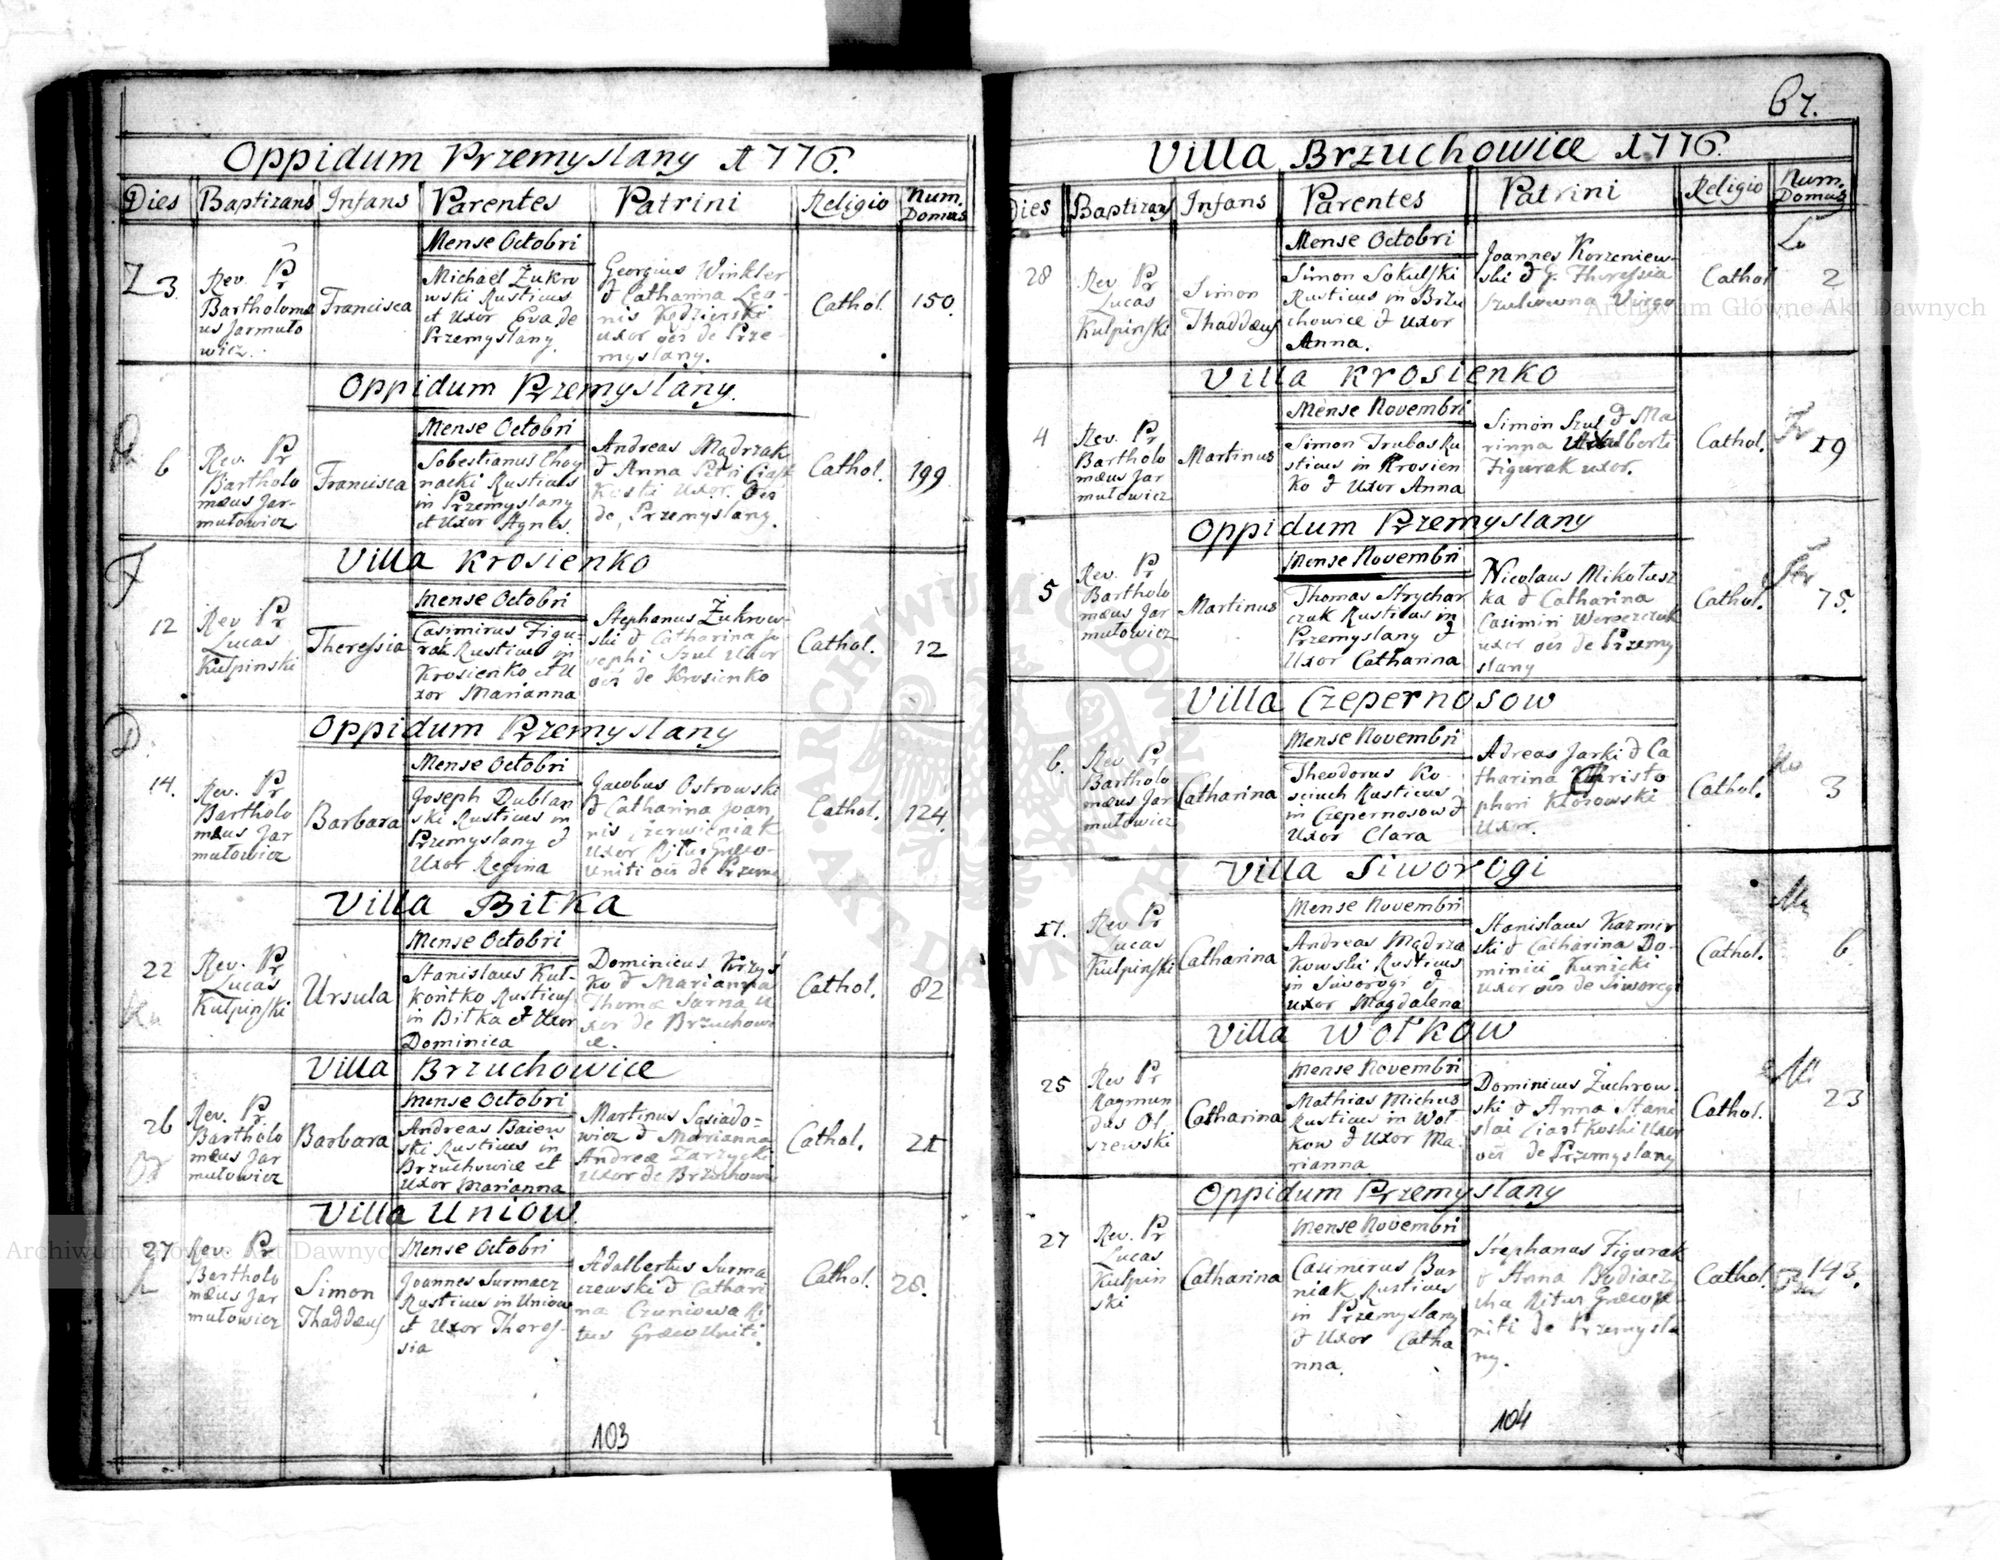 Oppidum Przemyslany 1776.
Dies Baptizans Infans Parentes Patrini Religio Num. Domus
Mense Octobri
3.
Rev. Pr
Bartholomæ
us Jarmuło
wicz.
Francisca
Michael Żukro
wski Rusticus
et Uxor Eva de
Przemyslany.
Georgius Winkler
& Catharina Leo-
nis Kędzierski
uxor oës de Prze-
myslany.
Cathol.
150.
Oppidum Przemyslany.
Mense Octobri
6
Rev. Pr
Bartholo
mæus Jar-
mułowicz
Francisca
Sobestianus Choy
nacki Rusticus
in Przemyslany
et Uxor Agnes.
Andreas Mądrzak
& Anna Petri Ciast
Koski Uxor. Oës
de, Przemyslany.
Cathol.
199
Villa Krosienko
Mense Octobri
12
Rev Pr
Lucas
Kulpinski
Theressia
Casimirus Figu-
rak Rusticus in
Krosienko et U
xor Marianna
Stephanus Żukrow-
ski & Catharina Jo
sephi Szul Uxor
oës de Krosienko
Cathol.
12
Oppidum Przemyslany
Mense Octobri
14.
Rev. Pr
Bartholo
mæus Jar
mułowicz
Barbara
Joseph Dublan
ski Rusticus in
Przemyslany &
Uxor Regina
Jacobus Ostrowski
& Catharina Joan
nis Czerwiniak
Uxor Ritus Græco-
Uniti oës de Przemy
Cathol.
124.
Villa Bitka
Mense Octobri
22
Rev. Pr
Lucas
Kulpinski
Ursula
Stanislaus Kuł-
kontko Rusticus
in Bitka et Uxor
Dominica
Dominicus Krzys
ko & Marianna
Thomæ Sarna U
xor de Brzuchowi
ce.
Cathol.
82
Villa Brzuchowice
Mense Octobri
26
Rev. Pr
Bartholo
mæus Jar
mułowicz
Barbara
Andreas Baiew
ski Rusticus in
Brzuchowice et
Uxor Marianna
Martinus Sąsiado-
wicz & Marianna
Andreæ Zarzycki
Uxor de Brzuchowi
Cathol.
21
Villa Uniow.
Mense Octobri
27
Rev. Pr
Bartholo
mæus Jar
mułowicz
Simon
Thaddæus
Joannes Surmacz
Rusticus in Uniow
et Uxor Theres-
sia
Adalbertus Surma
czewski & Cathari
na Cruniowa Ri
tus Græco Uniti.
Cathol.
28.
103
67.
Villa Brzuchowice 1776.
Dies Baptizans Infans Parentes Patrini Religio Num. Domus
Mense Octobri
28
Rev. Pr
Lucas
Kulpinski
Simon
Thaddæus
Simon Sokulski
Rusticus in Brzu
chowice & Uxor
Anna.
Joannes Korzeniew-
ski & G. Theressia
Szulowna Virgo
Cathol
2
Villa Krosienko
Mense Novembri
4
Rev. Pr
Bartholo
mæus Jar
mułowicz
Martinus
Simon Trubas Ru
sticus in Krosien
ko & Uxor Anna
Simon Szul & Ma
rinna Adalberti
Figurak uxor.
Cathol.
19
Oppidum Przemyslany
Mense Novembri
5
Rev. Pr
Bartholo
mæus Jar
mułowicz
Martinus
Thomas Strychar
czuk Rusticus in
Przemyslany &
Uxor Catharina
Nicolaus Mikołusz
ka & Catharina
Casimiri Wereszczuk
uxor oës de Przemy
slany
Cathol.
75.
Villa Czepernosow
Mense Novembri
6.
Rev Pr
Bartholo
mæus Jar
mułowicz
Catharina
Theodorus Ko-
sciuch Rusticus
in Czepernosow &
Uxor Clara
Adreas Jarki & Ca
tharina Christo
phori Klosowski
Uxor.
Cathol.
3
Villa Siworogi
Mense Novembri
17.
Rev Pr
Lucas
Kulpinski
Catharina
Andreas Mądrza
kowski Rusticus
in Siworogi &
uxor Magdalena
Stanislaus Kazmir
ski & Catharina Do-
minici Kunicki
uxor oës de Siworogi
Cathol.
6
Villa Wołkow
Mense Novembri
25
Rev Pr
Raymun
dus Ol
szewski
Catharina
Mathias Michus
Rusticus in Woł
kow & Uxor Ma-
rianna
Dominicus Żuchrow-
ski & Anna Stani
slai Ciastkoski Uxor
oës de Przemyslany
Cathol.
23
Oppidum Przemyslany
Mense Novembri
27
Rev. Pr
Lucas
Kulpin
ski
Catharina
Casimirus Bur
niak Rusticus
in Przemyslany
& Uxor Catha
nna
Stephanus Figurak
& Anna Bodiacz
cha Ritus Græco U
niti de Przemysla
ny.
Cathol.
143.
104
Archiwum Główne Akt Dawnych
Archiwum Główne Akt Dawnych
ARCHIWUM GŁÓWNE AKT DAWNYCH